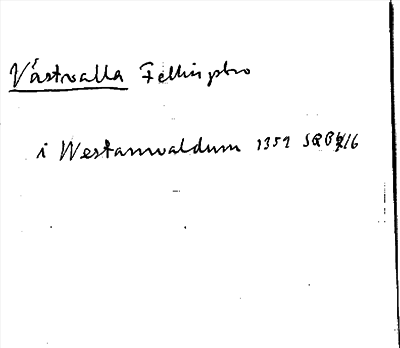 Västvalla Fellingsbro
i Westanwaldum 1352 SRB 16